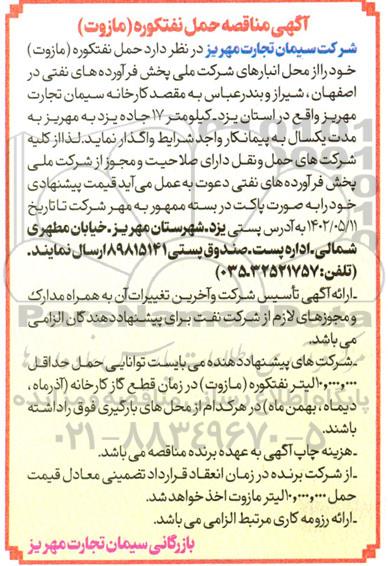 آگهی مناقصه حمل نفتکوره (مازوت)
شرکت سیمان تجارت مهریز در نظر دارد حمل نفتکوره (مازوت)
خود را از محل انبارهای شرکت ملی پخش فرآورده های نفتی در
اصفهان، شیراز و بندرعباس به مقصد کارخانه سیمان تجارت
مهریز واقع در استان یزد-کیلومتر ۱۷ جاده یزد به مهریز به
مدت یکسال به پیمانکار واجد شرایط واگذار نماید. لذا از کلیه
شرکت های حمل و نقل دارای صلاحیت و مجوز از شرکت ملی
پخش فرآورده های نفتی دعوت به عمل می آید قیمت پیشنهادی
خود را به صورت پاکت در بسته ممهور به مهر شرکت تا تاریخ
۱۴۰۲/۰۵/۱۱ به آدرس پستی یزد-شهرستان مهریز-خیابان مطهری
شمالی-اداره پست-صندوق پستی ۸۹۸۱۵۱۴۱ ارسال نمایند.
(تلفن: ۳۲۵۲۱۷۵۷-۰۳۵)
-ارائه آگهی تأسیس شرکت و آخرین تغییرات آن به همراه مدارک
و مجوزهای لازم از شرکت نفت برای پیشنهاد دهندگان الزامی
می باشد.
-شرکت های پیشنهاد دهنده می بایست توانایی حمل حداقل
۱۰,۰۰۰,۰۰۰ لیتر نفتکوره (مازوت) در زمان قطع گاز کارخانه (آذرماه،
دیماه، بهمن ماه) در هر کدام از محل های بارگیری فوق را داشته
باشند.
-هزینه چاپ آگهی به عهده برنده مناقصه می باشد.
-از شرکت برنده در زمان انعقاد قرارداد تضمینی معادل قیمت
حمل ۱۰,۰۰۰,۰۰۰ لیتر مازوت اخذ خواهد شد.
-ارائه رزومه کاری مرتبط الزامی می باشد.
بازرگانی سیمان تجارت مهریز
۰۲۱-۸۸۳۴۹۶۷۰-۵